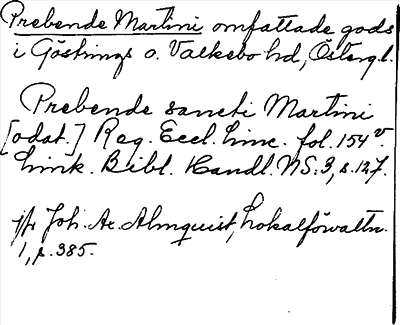 Prebende Martini omfattade gods
i Göstrings o. Valkebo hd, Östergl.
Prebende sancti Martini
[odat.] Reg. Eccl. Linc. fol. 154 v.
Link. Bibl. Handl. NS. 3, s. 127.
jfr Joh. Ax. Almquist, Lokalförvaltn.
1, s. 385.